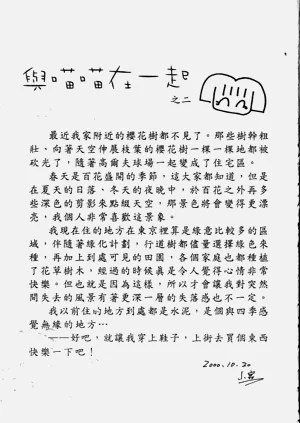 與喵喵在一起
之二
最近我家附近的櫻花樹都不見了。那些樹幹粗
壯、向著天空伸展枝葉的櫻花樹一棵一棵地都被
砍光了，隨著高爾夫球場一起變成了住宅區。
春天是百花盛開的季節，這大家都知道，但是
在夏天的日落、冬天的夜晚中，於百花之外再多
些深色的剪影來點綴天空，那景色將會變得更漂
亮，我個人非常喜歡這景象。
我現在住的地方在東京裡算是綠意比較多的區
域，伴隨著綠化計劃，行道樹都儘量選擇綠色來
種，再加上到處可見的田園，各個家庭也都種植
了花草樹木，經過的時候真是令人覺得心情非常
快樂。但也就是因為這樣，所以才會讓我對突然
間失去的風景有著更深一層的失落感也不一定。
我以前住的地方到處都是水泥，是個與四季感
覺無緣的地方…
——好吧，就讓我穿上鞋子，上街去買個東西
快樂一下吧！
2000.10.20